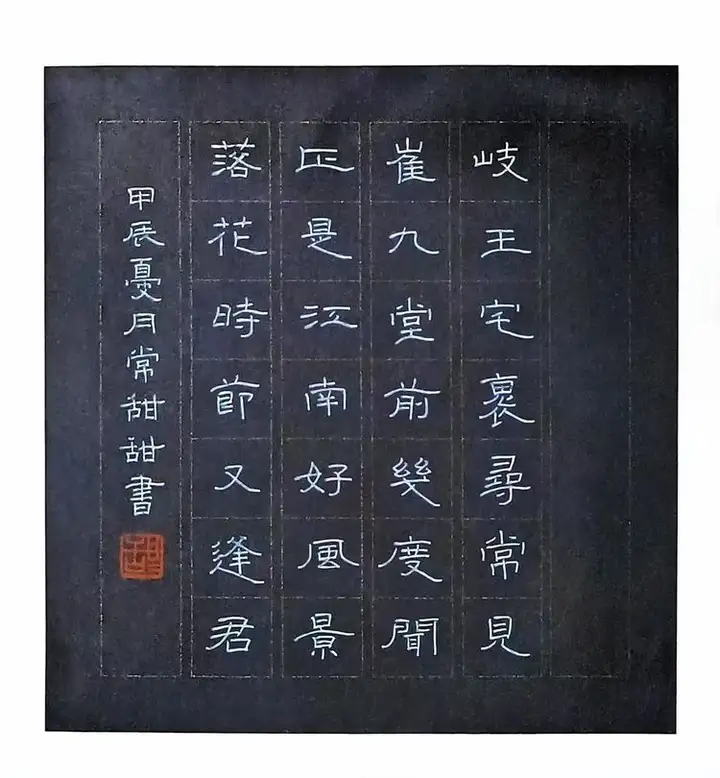 岐王宅裏尋常見
崔九堂前幾度聞
正是江南好風景
落花時節又逢君
甲辰夏月常甜甜書